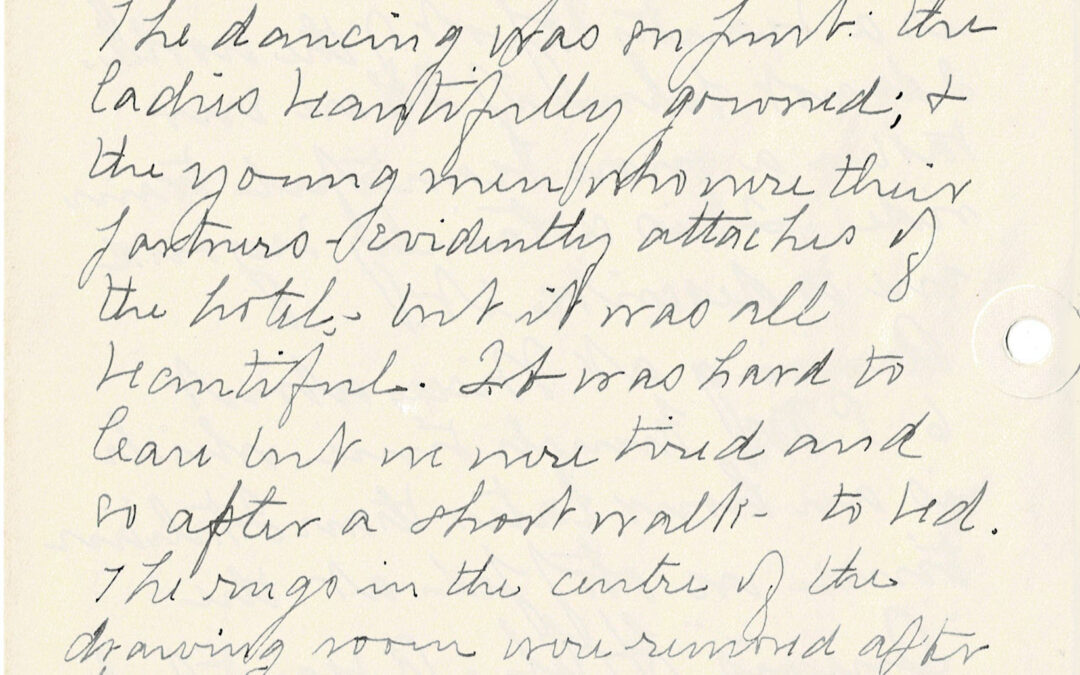 The dancing was in full: the
ladies beautifully gowned; &
the young men who were their
partners - evidently attaches of
the hotel, - but it was all
beautiful. It was hard to
leave but we were tired and
so after a short walk - to bed.
The rugs in the centre of the
drawing room were removed after